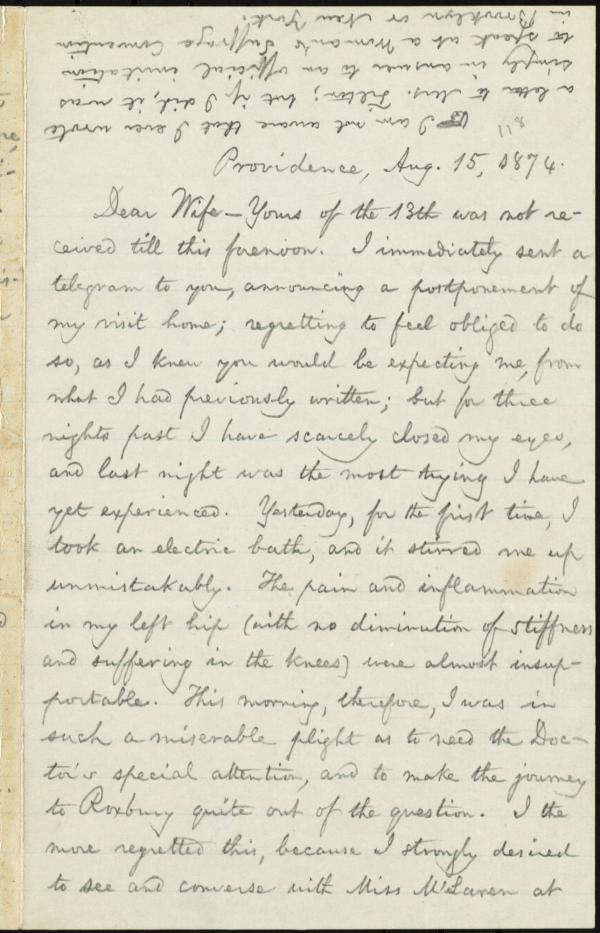 ☞ I am not aware that I ever wrote
a letter to Mrs. Tilton; but if I did, it was
simply in answer to an official invitation
to speak at a Woman's Suffrage Convention
in Brooklyn or New York.
Providence, Aug. 15, 1874.
Dear Wife—Yours of the 13th was not re-
ceived till this forenoon. I immediately sent a
telegram to you, announcing a postponement of
my visit home; regretting to feel obliged to do
so, as I knew you would be expecting me, from
what I had previously written; but for three
nights past I have scarcely closed my eyes,
and last night was the most trying I have
yet experienced. Yesterday, for the first time, I
took an electric bath, and it stirred me up
unmistakably. The pain and inflammation
in my left hip (with no diminution of stiffness
and suffering in the knees) were almost insup-
portable. This morning, therefore, I was in
such a miserable plight as to need the Doc-
tor's special attention, and to make the journey
to Roxbury quite out of the question. I the
more regretted this, because I strongly desired
to see and converse with Miss McLaren at